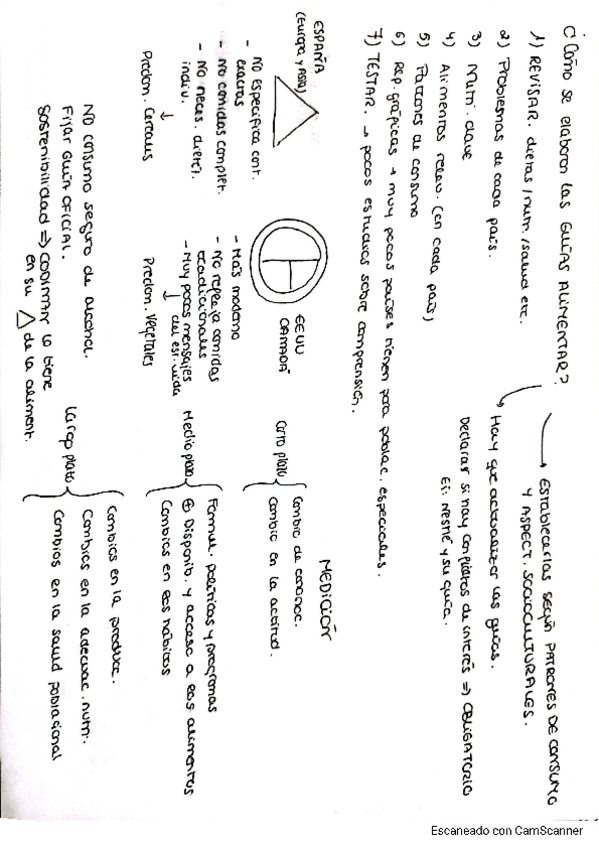 ¿Cómo se elaboran las GUÍAS ALIMENTAR?
→ ESTABLECERLAS SEGÚN PATRONES DE CONSUMO
Y ASPECT. SOCIOCULTURALES.
→ Hay que actualizar las guías.
Declarar si hay conflictos de interés ⇒ OBLIGATORIO
Ej: Nestlé y su guía.
1) REVISAR. dietas / nutri / salud etc.
2) Problemas de cada país.
3) Nutri. clave
4) Alimentos relev. (en cada país)
5) Patrones de consumo
6) Rep. gráficas → muy pocos países tienen para poblac. especiales.
7) TESTAR. → pocos estudios sobre comprensión.
ESPAÑA
(Europa y Asia)
- No especifica cont.
exactas
- No comidas complet.
- No neces. dietét.
indiv.
↓
Predom. Cereales
EEUU
CANADÁ
- Más moderno
- No refleja comidas
tradicionales
- Muy pocos mensajes
del est. vida
↓
Predom. vegetales
MEDICIÓN
Corto plazo
Cambio de conoc.
Cambio en la actitud.
Medio plazo
Formul. políticas y programas
⊕ Disponib. y acceso a los alimentos
Cambios en los hábitos
Largo plazo
Cambios en la produc.
Cambios en la adecuac. nutri.
Cambios en la salud poblacional
NO consumo seguro de alcohol.
Fijar GUÍA OFICIAL.
Sostenibilidad ⇒ CODINMA lo tiene
en su △ de la aliment.
Escaneado con CamScanner